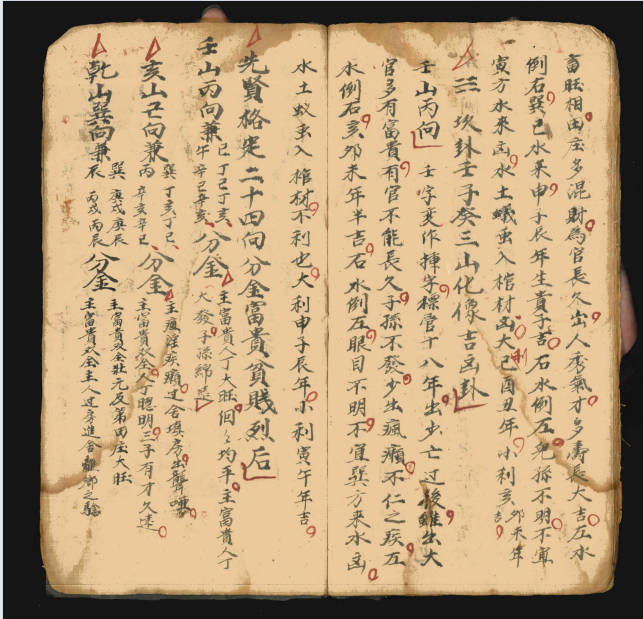 畜旺相由庄多混財為官長久出人秀氣才多壽長大吉左水
倒石巽巳水來申子辰年生貴子吉石水倒左兄孫不明不宜
寅方水來凶水土蟻虫入棺材凶大利巳酉丑年小利亥卯未年吉
三坎卦壬子癸三山化像吉凶卦
壬山丙向 壬字变作揀字標管十八年出少亡过後雖出大
官多有富貴有官不能長久子孫不發少出瘋癩不仁之疾左
水倒石亥卯未年半吉石水倒左眼目不明不宜巽方来水凶
水土蚁虫入棺材不利也大利申子辰年小利寅午年吉
先賢格定二十四向分金富貴貧賤烈后
壬山丙向兼午 巳丁巳丁亥 辛巳辛亥 分金 主富貴人丁大旺個々均平主富貴人丁
大發子孫綿遠
亥山巳向兼丙 巽丁亥丁巳 辛亥辛巳 分金 主瘋癆疾癩过舍填房出聾啞
主富貴双全人丁聰明三子有才久遠
乾山巽向兼辰 巽庚戌庚辰 丙戌丙辰 分金 主富貴双全壯元及第田庄大旺
主富貴双全主人过房進舍離鄉之驗